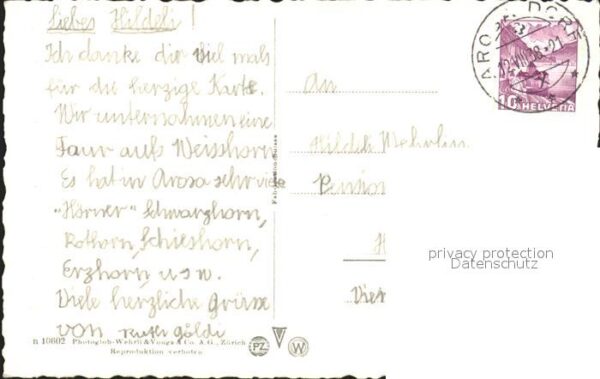 Liebes Hildeli!
Ich danke dir viel mals
für die herzige Karte.
Wir unternahmen eine
Taur aufs Weisshorn
Es hat in Arosa sehr viele
"Hörner" Schwarzhorn,
Rothorn, Schieshorn,
Erzhorn, u s w.
Viele herzliche Grüsse
von Ruth Göldi
An
Hildeli
Pension
H
Vier
AROSA DORF
12.VIII.38.-21
10 HELVETIA
privacy protection
Datenschutz
n 10602 Photoglob-Wehrli & Vouga & Co. A.G., Zürich
Reproduktion verboten
PZ
W